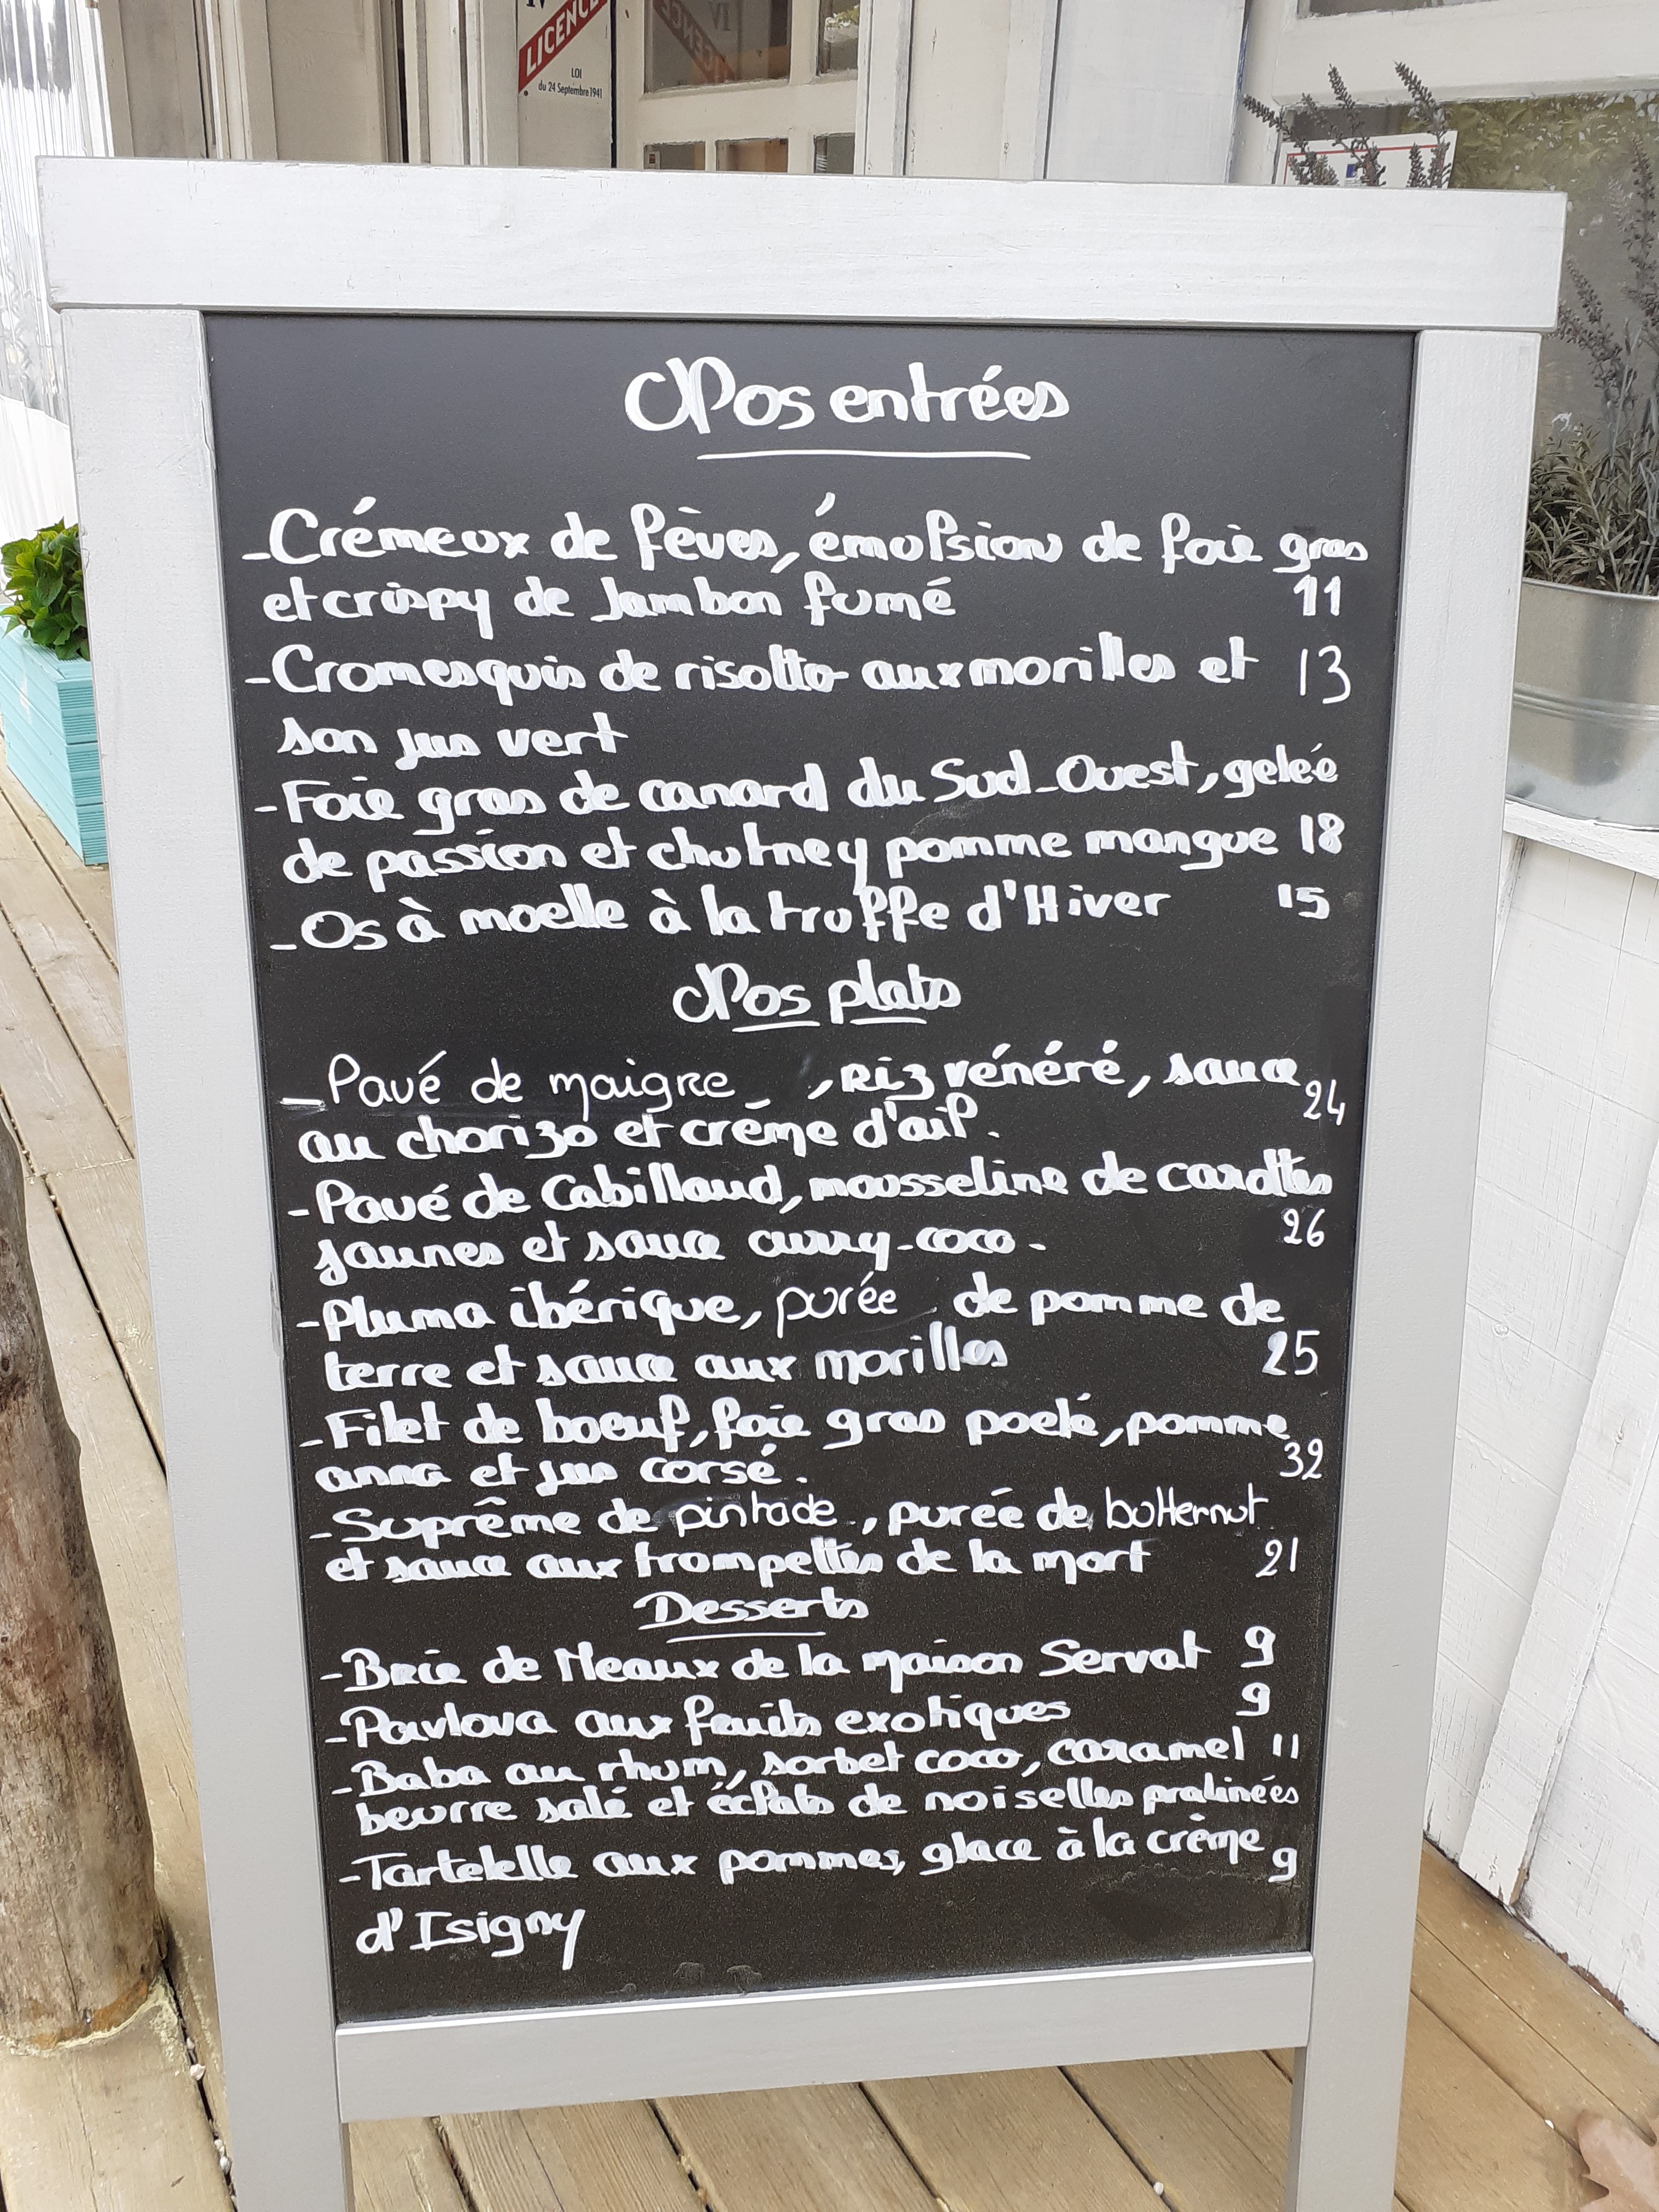 LICENCE
LOI
du 24 Septembre 1941
Nos entrées
-Crémeux de fèves, émulsion de foie gras
et crispy de Jambon fumé 11
-Cromesquis de risotto aux morilles et 13
son jus vert
-Foie gras de canard du Sud-Ouest, gelée
de passion et chutney pomme mangue 18
-Os à moelle à la truffe d'Hiver 15
Nos plats
-Pavé de maigre , Riz vénéré, sauce
au chorizo et créme d'ail. 24
-Pavé de Cabillaud, mousseline de carottes
jaunes et sauce curry-coco- 26
-Pluma ibérique, purée de pomme de
terre et sauce aux morilles 25
-Filet de boeuf, foie gras poelé, pomme
anna et jus corsé. 32
-Suprême de pintade, purée de butternut
et sauce aux trompettes de la mort 21
Desserts
-Brie de Meaux de la maison Servat 9
-Pavlova aux fruits exotiques 9
-Baba au rhum, sorbet coco, caramel 11
beurre salé et éclats de noisettes pralinées
-Tartelelle aux pommes, glace à la crème 9
d'Isigny